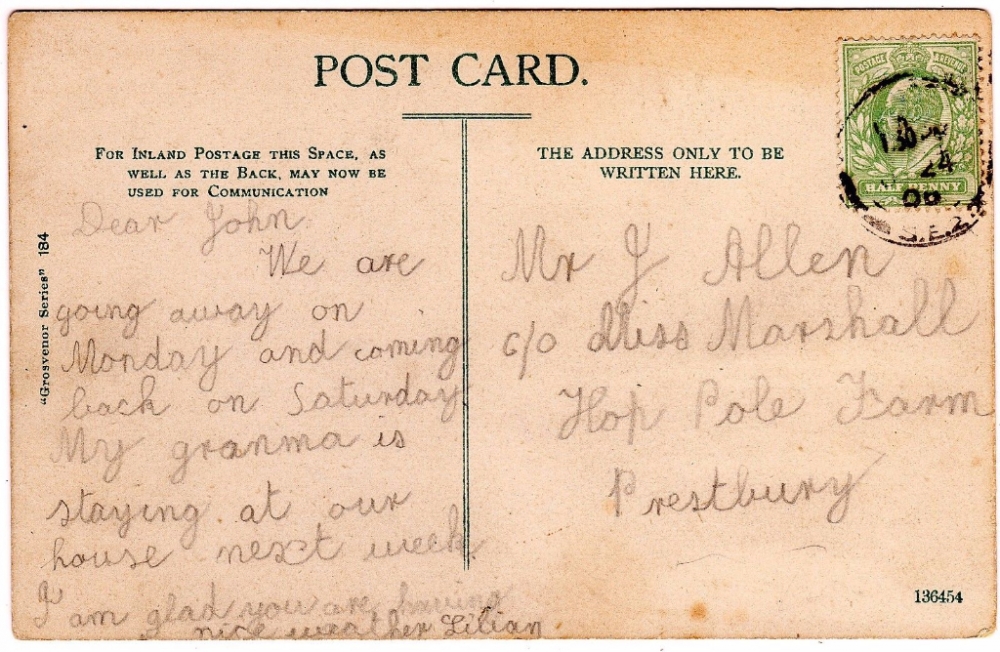 POST CARD.
FOR INLAND POSTAGE THIS SPACE, AS
WELL AS THE BACK, MAY NOW BE
USED FOR COMMUNICATION
THE ADDRESS ONLY TO BE
WRITTEN HERE.
POSTAGE & REVENUE
HALF PENNY
24
06
S.E.
"Grosvenor Series" 184
Dear John
We are
going away on
Monday and coming
back on Saturday
My granma is
staying at our
house next week.
I am glad you are having
nice weather Lilian
Mr J Allen
c/o Miss Marshall
Hop Pole Farm
Prestbury
136454